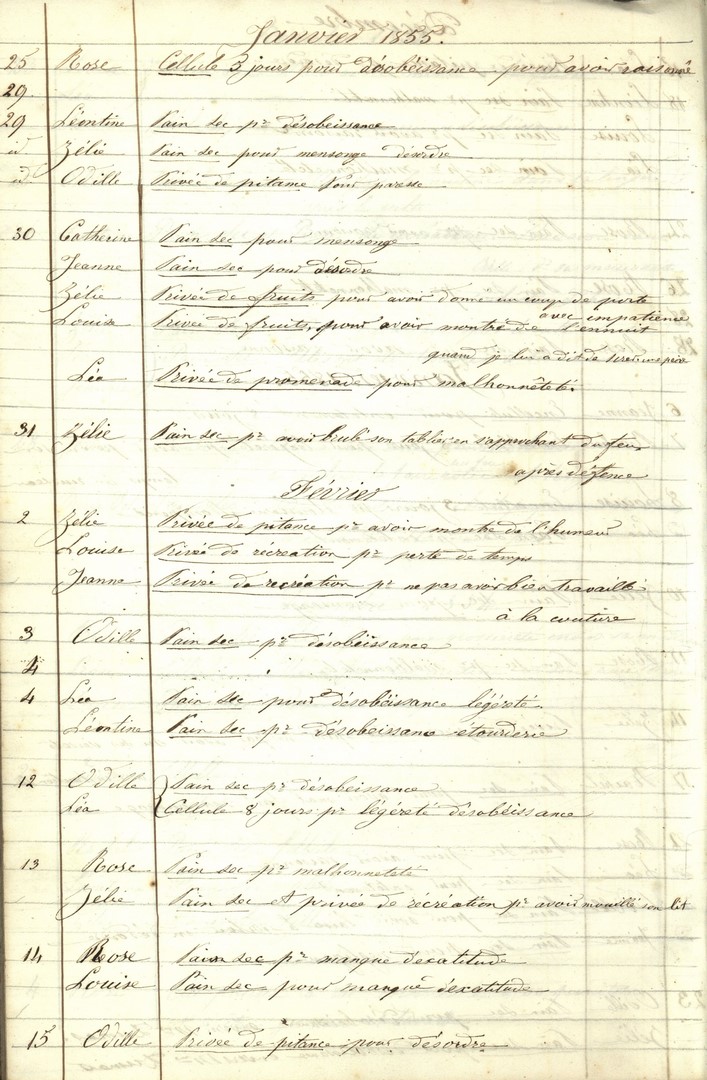 Janvier 1855.
25 Rose Cellule 3 jours pour désobéissance pour avoir raisonné
29
29 Léontine Pain sec pr désobeissance
id Zélie Pain sec pour mensonge désordre
id Odille Privée de pitance pour paresse
30 Catherine Pain sec pour mensonge
Jeanne Pain sec pour désordre
Zélie Privée de fruits pour avoir donné un coup de porte
avec impatience
Louise Privée de fruits, pour avoir montré de l'ennuit
quand je lui a dit de
Léa Privée de promenade pour malhonnêteté.
31 Zélie Pain sec pr avoir brulé son tablier en s'approchant du feu
après défence
Février
2 Zélie Privée de pitance pr avoir montré de l'humeur
Louise Privée de récreation pr perte de temps
Jeanne Privée de recréation pr ne pas avoir bien travaillé
à la couture
3 Odille Pain sec pr désobéissance
4
4 Léa Pain sec pour désobéissance légéreté.
Léontine Pain sec pr désobeissance étourderie
12 Odille Pain sec pr désobeissance
Léa Cellule 8 jours pr légéreté désobéissance
13 Rose Pain sec pr malhonneteté
Zélie Pain sec et privée de récréation pr avoir mouillé son lit
14 Rose Pain sec pr manque d'exatitude
Louise Pain sec pour manque d'exatitude
15 Odille Privée de pitance pour désordre